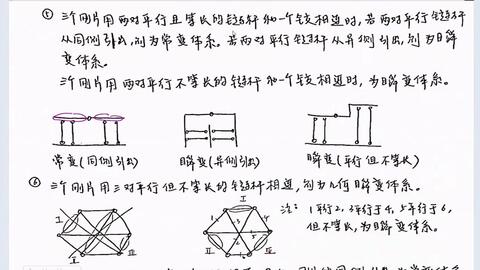 ⑤ 三个刚片用两对平行且等长的链杆和一个铰相连时,若两对平行链杆
从同侧引出,则为常变体系。若两对平行链杆从异侧引出,则为瞬
变体系。
三个刚片用两对平行不等长的链杆和一个铰相连时,为瞬变体系。
常变(同侧引出) 瞬变(异侧引出) 瞬变(平行但不等长)
⑥ 三个刚片用三对平行但不等长的链杆相连,则为几何瞬变体系。
I I 注: 1平行2, 3平行于4, 5平行于6,
但不等长,为瞬变体系。
II II III